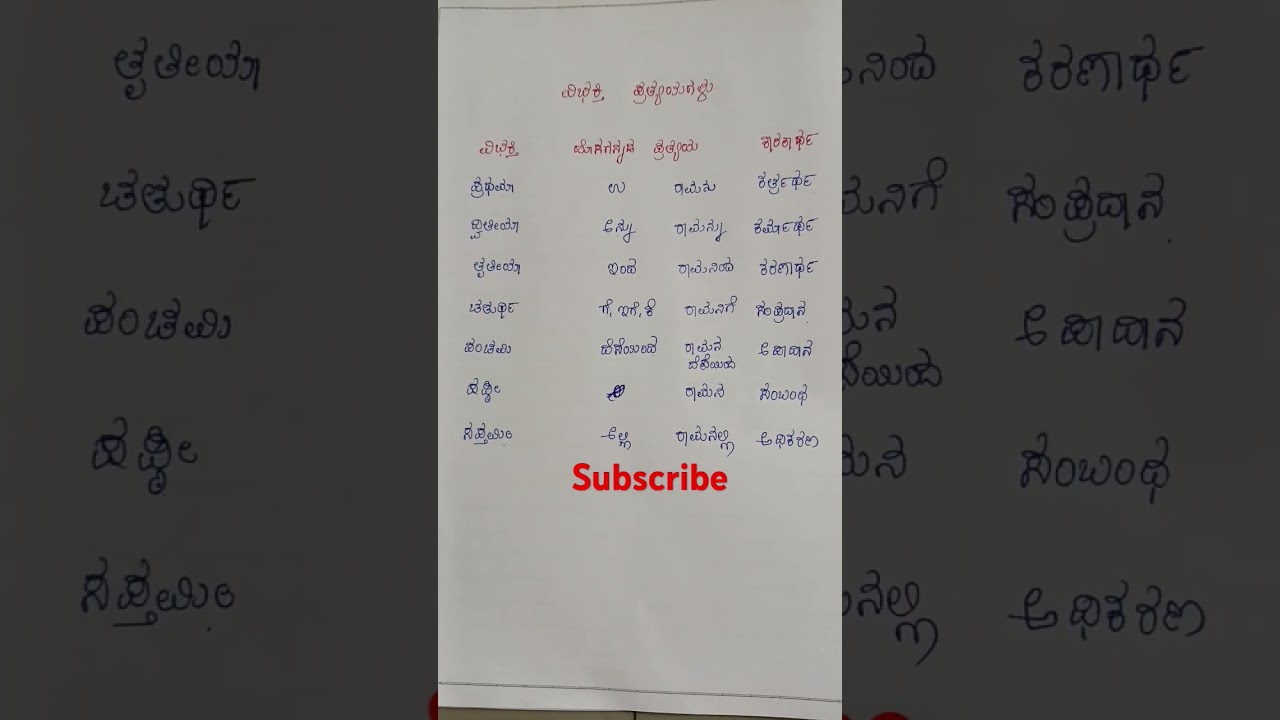 ವಿಭಕ್ತಿ ಪ್ರತ್ಯಯಗಳು
ವಿಭಕ್ತಿ ಹೊಸಗನ್ನಡ ಪ್ರತ್ಯಯ ಕಾರಕಾರ್ಥ
ಪ್ರಥಮಾ ಉ ರಾಮನು ಕರ್ತ್ರರ್ಥ
ದ್ವಿತೀಯಾ ಅನ್ನು ರಾಮನ್ನು ಕರ್ಮಾರ್ಥ
ತೃತೀಯಾ ಇಂದ ರಾಮನಿಂದ ಕರಣಾರ್ಥ
ಚತುರ್ಥಿ ಗೆ, ಇಗೆ, ಕೆ ರಾಮನಿಗೆ ಸಂಪ್ರದಾನ
ಪಂಚಮಿ ದೆಸೆಯಿಂದ ರಾಮನ ದೆಸೆಯಿಂದ ಅಪಾದಾನ
ಷಷ್ಠೀ ಅ ರಾಮನ ಸಂಬಂಧ
ಸಪ್ತಮೀ ಅಲ್ಲಿ ರಾಮನಲ್ಲಿ ಅಧಿಕರಣ
Subscribe